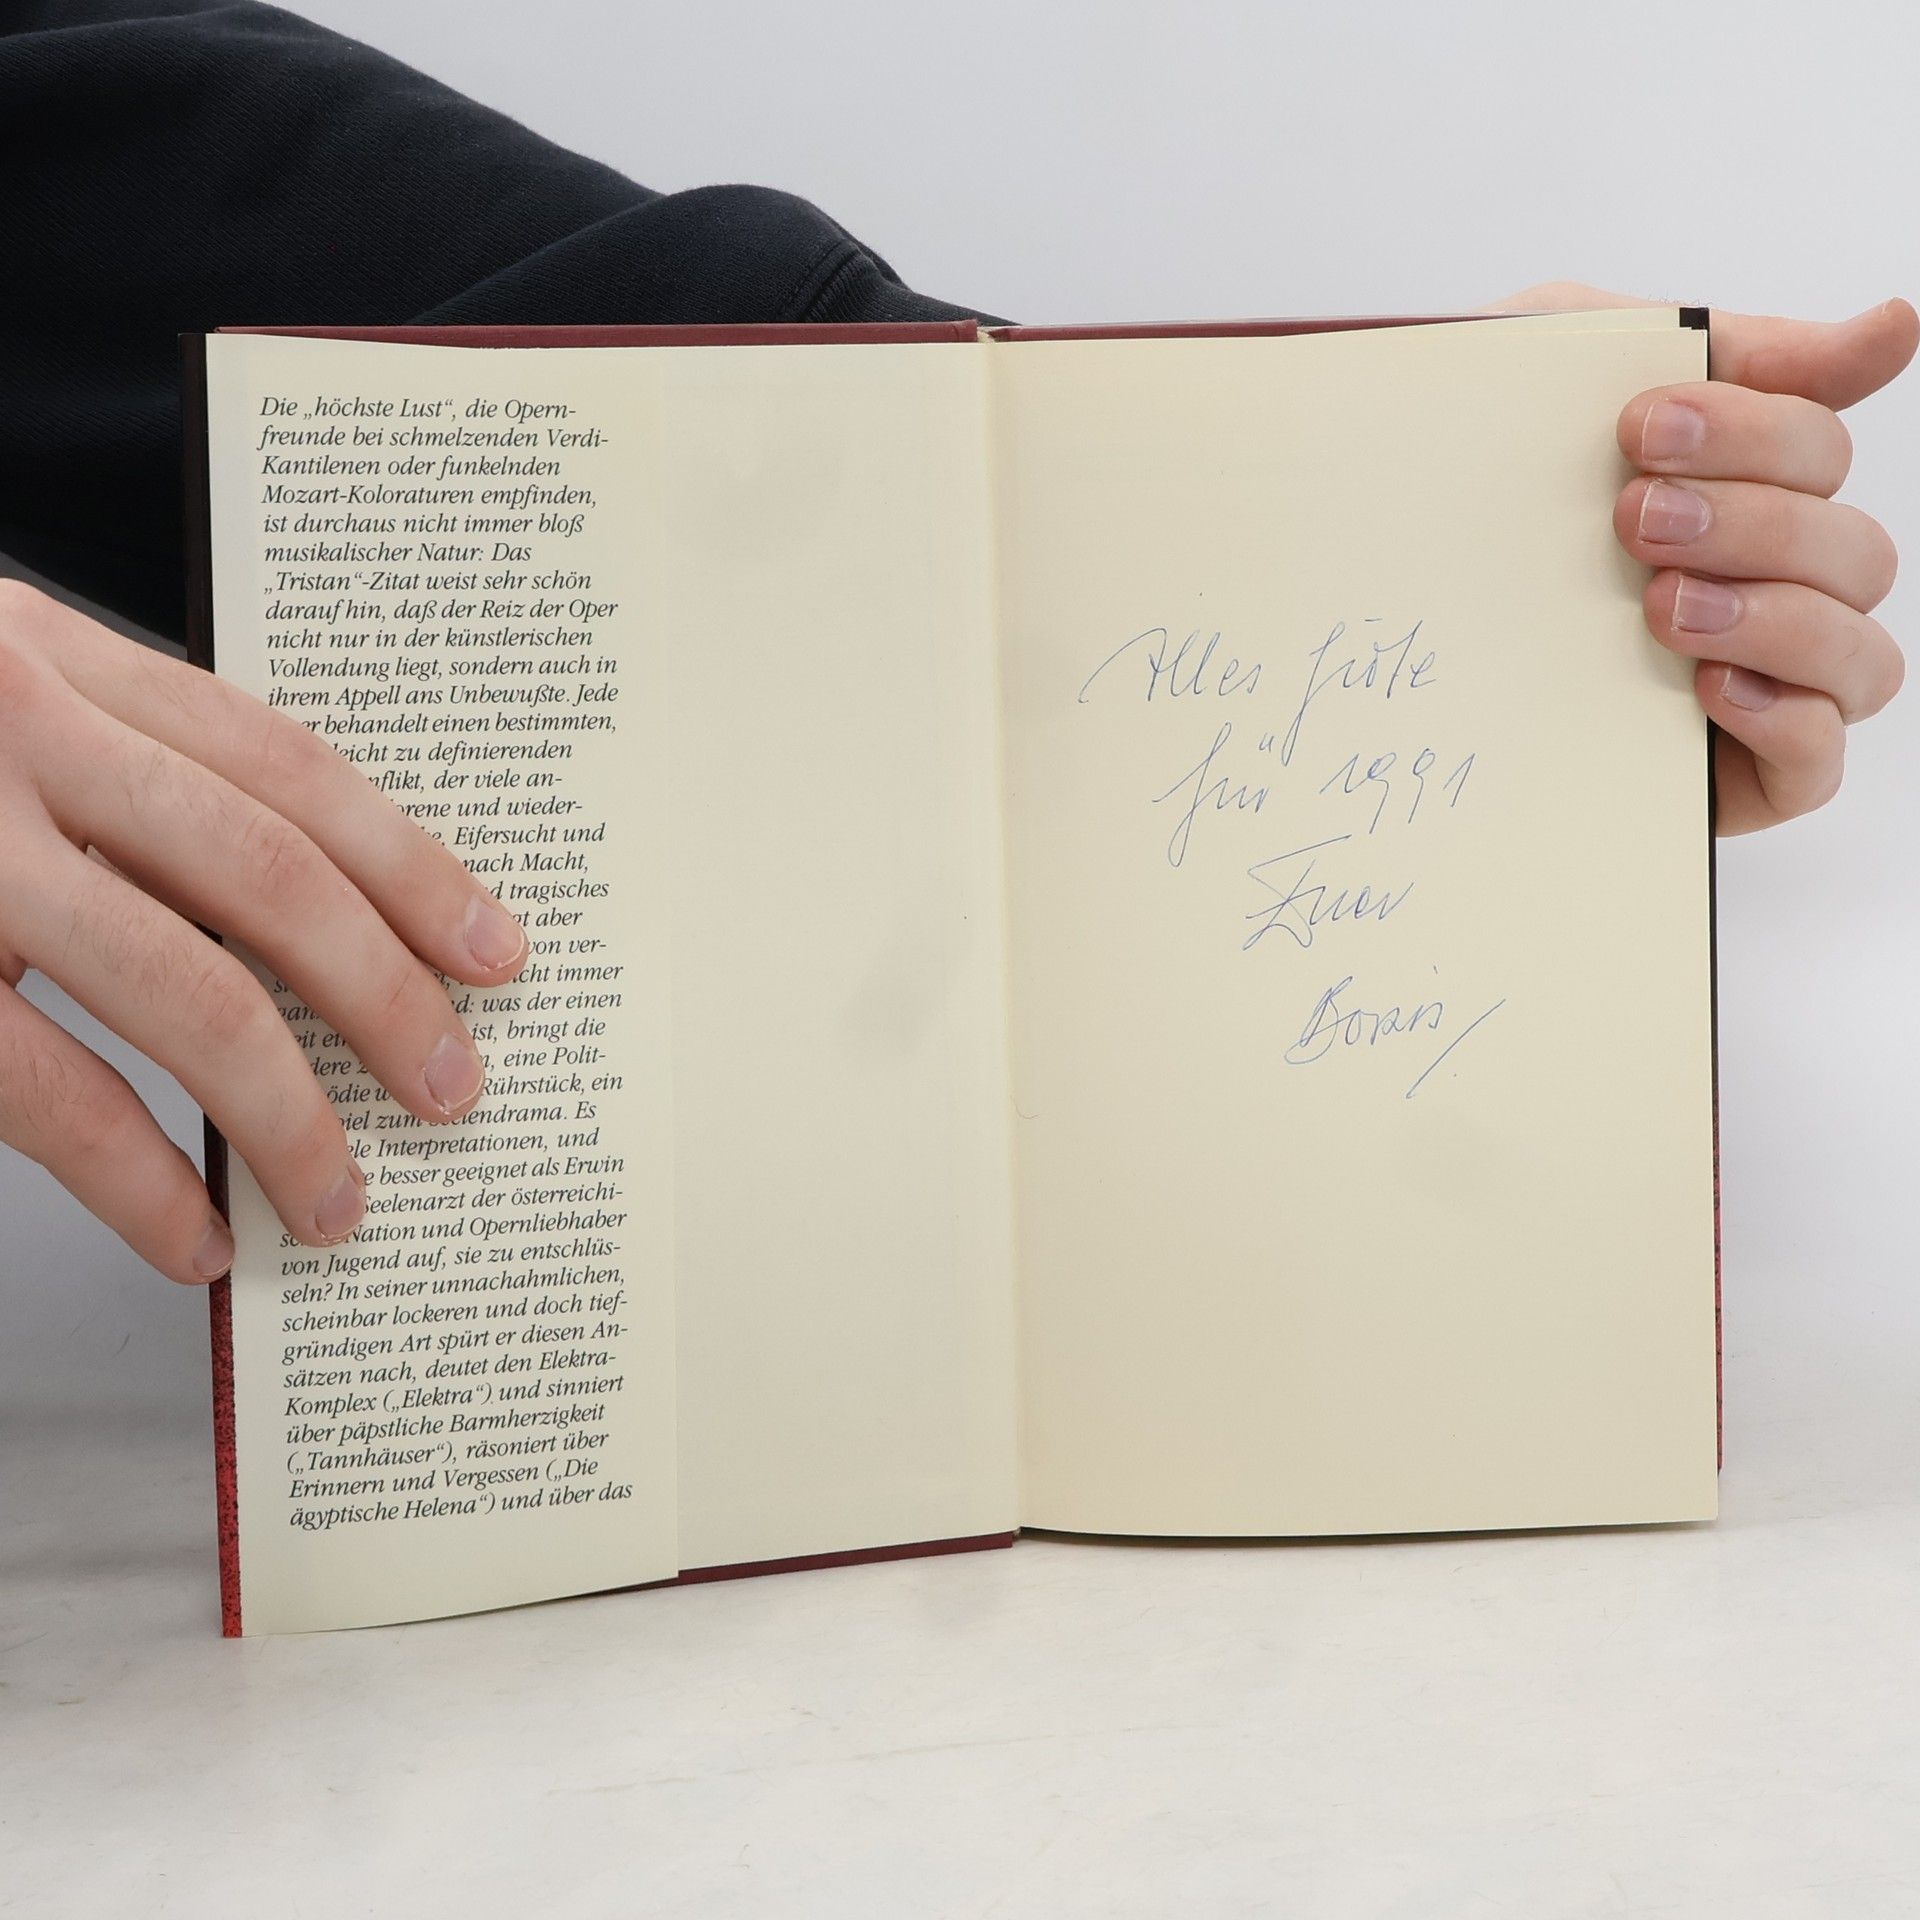 Die „höchste Lust“, die Opern-
freunde bei schmelzenden Verdi-
Kantilenen oder funkelnden
Mozart-Koloraturen empfinden,
ist durchaus nicht immer bloß
musikalischer Natur: Das
„Tristan“-Zitat weist sehr schön
darauf hin, daß der Reiz der Oper
nicht nur in der künstlerischen
Vollendung liegt, sondern auch in
ihrem Appell ans Unbewußte. Jede
behandelt einen bestimmten,
leicht zu definierenden
der viele an-
und wieder-
Eifersucht und
nach Macht,
tragisches
aber
von ver-
immer
was der einen
ist, bringt die
eine Polit-
Rührstück, ein
zum Seelendrama. Es
Interpretationen, und
besser geeignet als Erwin
Seelenarzt der österreichi-
Nation und Opernliebhaber
von Jugend auf, sie zu entschlüs-
seln? In seiner unnachahmlichen,
scheinbar lockeren und doch tief-
gründigen Art spürt er diesen An-
sätzen nach, deutet den Elektra-
Komplex („Elektra“) und sinniert
über päpstliche Barmherzigkeit
(„Tannhäuser“), räsoniert über
Erinnern und Vergessen („Die
ägyptische Helena“) und über das
Alles Gute
für 1991
Euer
Boris